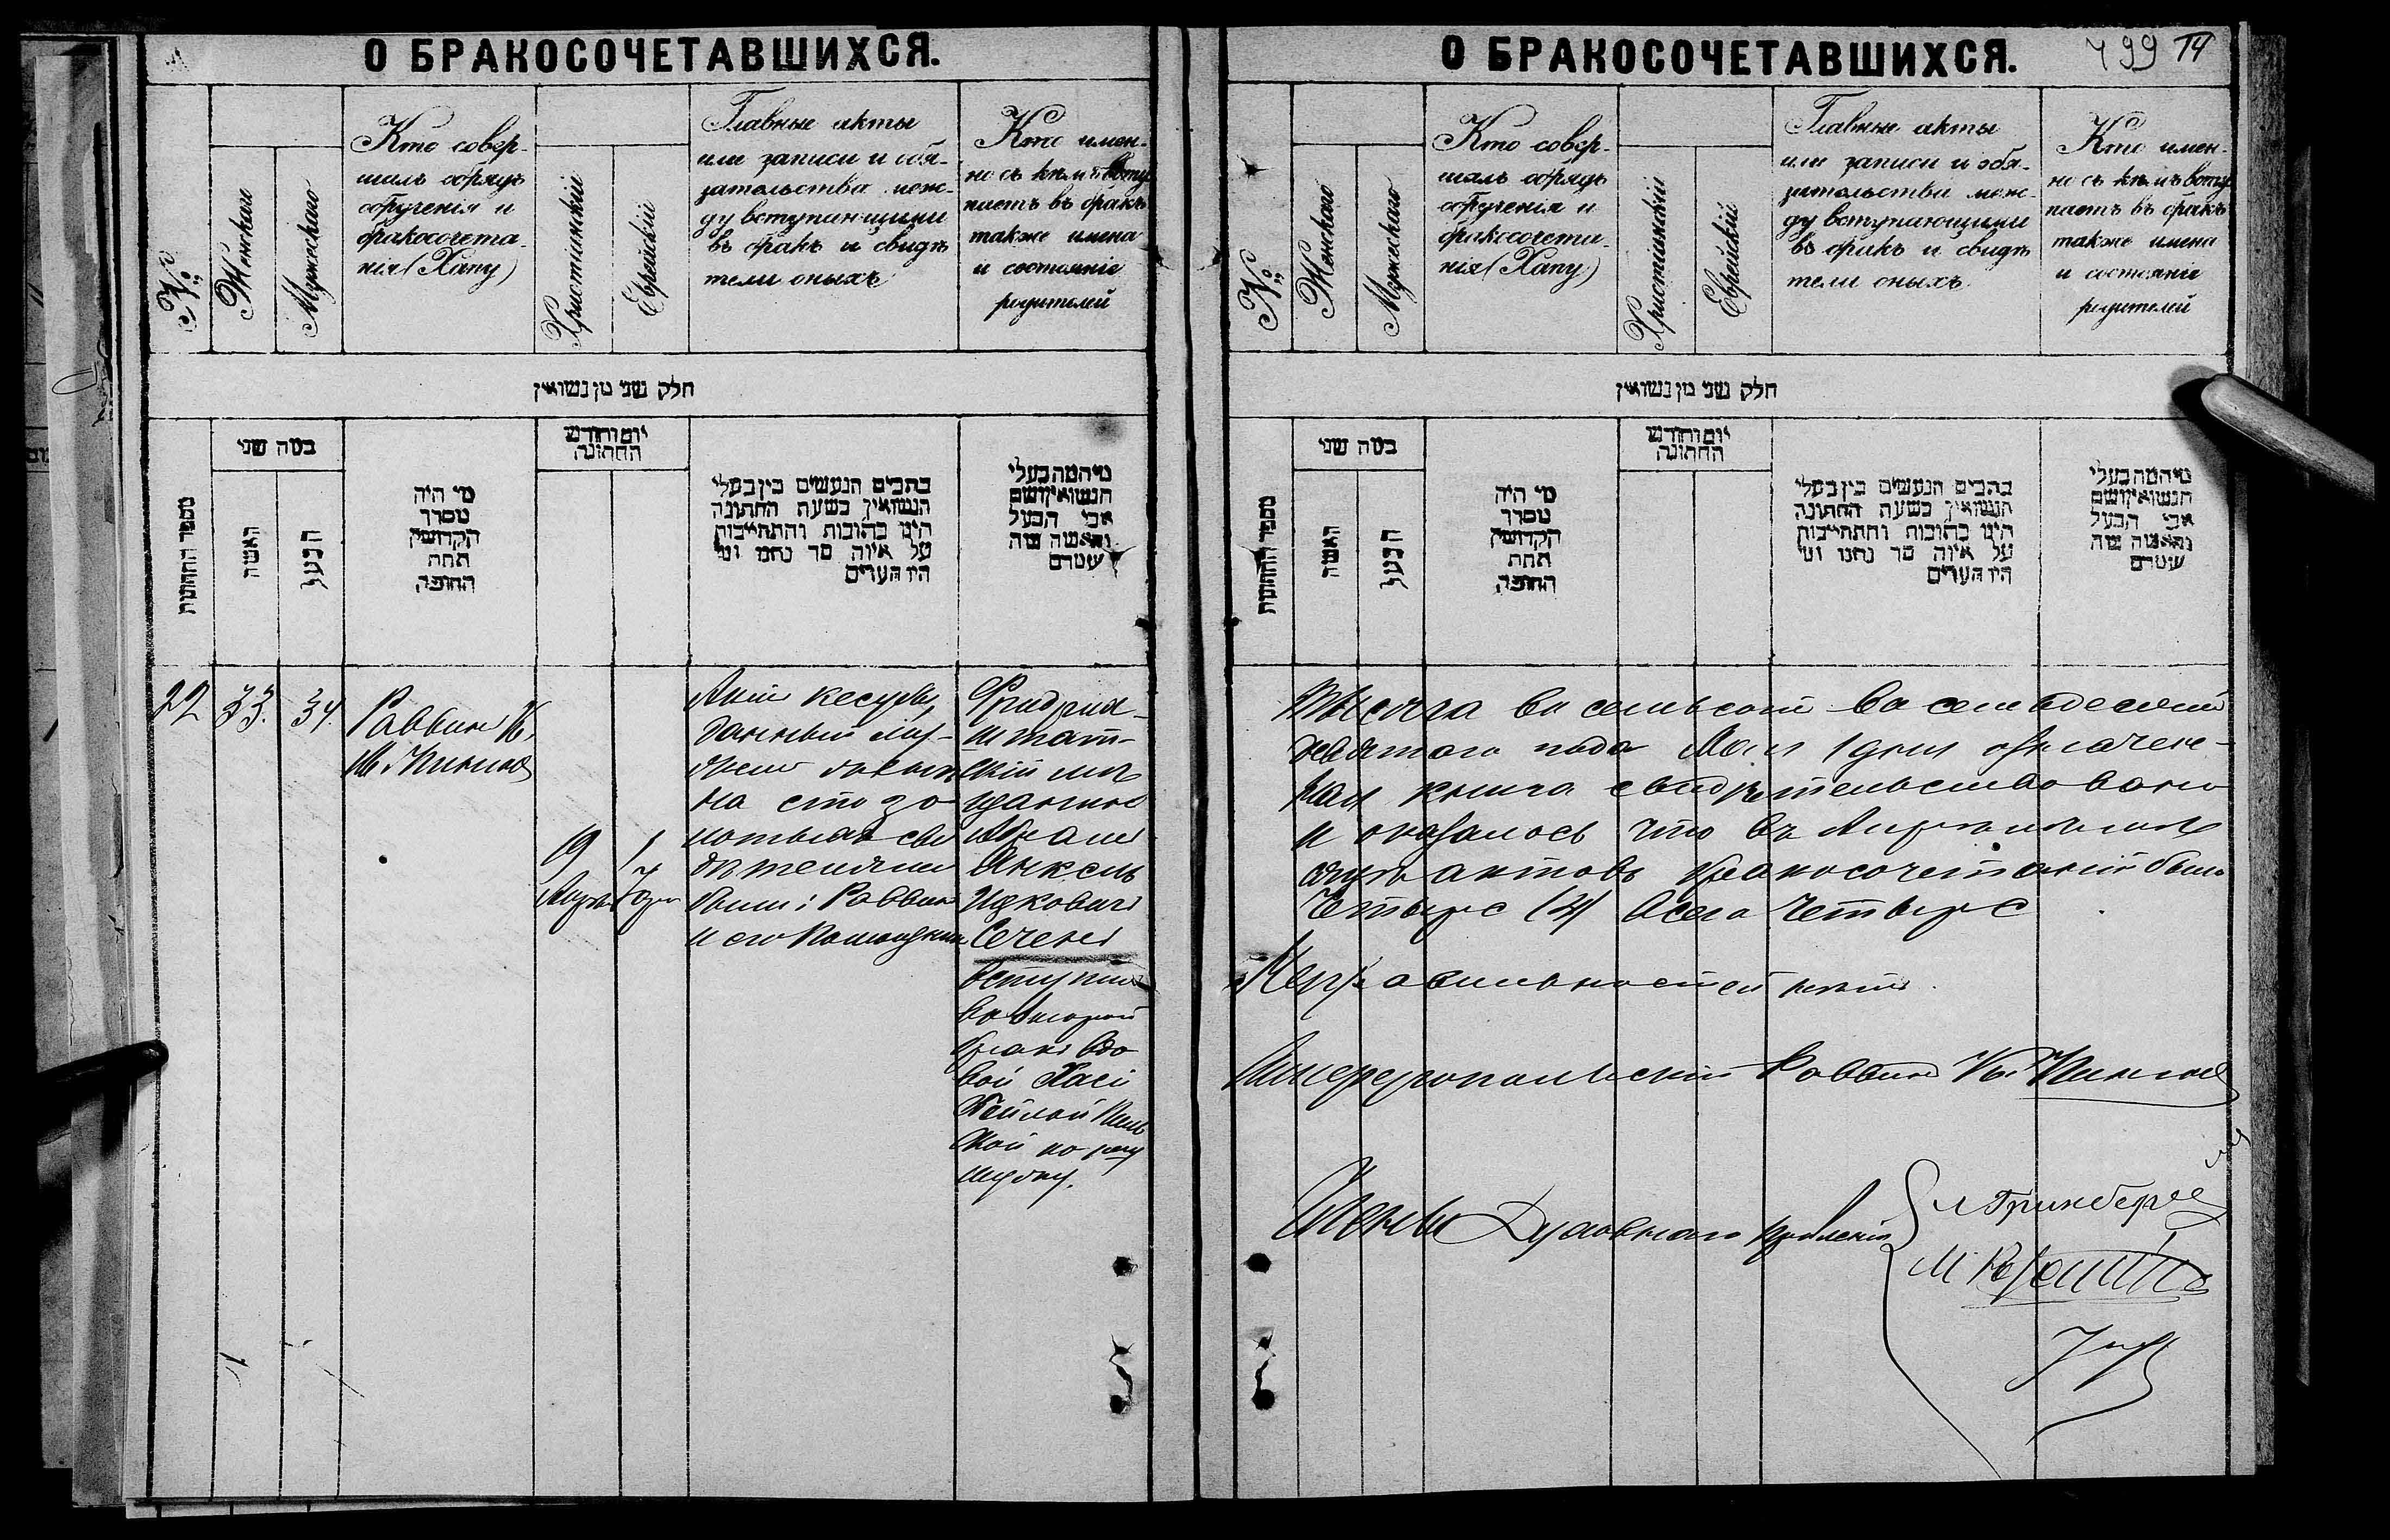 О БРАКОСОЧЕТАВШИХСЯ.
№
Женскаго
Мужескаго
Кто совер-
шалъ обрядъ
обрученія и
бракосочета-
нія (Хапу)
Христіанскій
Еврейскій
Главные акты
или записи и обя-
зательства меж-
ду вступающими
въ бракъ и свидѣ
тели оныхъ
Кто имен-
но съ кѣмъ всту
паетъ въ бракъ
также имена
и состояніе
родителей
חלק שני מן נשואין
מספר החתונות
במה שני
האשה
הבעל
מי היה
מסדר
הקדושין
תחת
החופה
יום וחודש
החתונה
כתבים הנעשים בין בעלי
הנשואין בשעת החתונה
היינו כתובות והתחייבות
על איזה סך נתנו ומי
היו העדים
מי המה בעלי
הנשואין ושם
אבי הבעל
והאשה מה
שמם
22
33.
34.
Раввинъ К.
9
1
на сто зо
лотыхъ сви
дѣтелями
были: Раввинъ
Фридрих
штат-
скій мѣ
щанинъ
Абрамъ
Янкель
Ицковичъ
Сеченъ
вступилъ
во второй
бракъ вдо
вой Хасі
Бейлой
О БРАКОСОЧЕТАВШИХСЯ.
499 14
№
Женскаго
Мужескаго
Кто совер-
шалъ обрядъ
обрученія и
бракосочета-
нія (Хапу)
Христіанскій
Еврейскій
Главные акты
или записи и обя-
зательства меж-
ду вступающими
въ бракъ и свидѣ
тели оныхъ
Кто имен-
но съ кѣмъ всту
паетъ въ бракъ
также имена
и состояніе
родителей
חלק שני מן נשואין
מספר החתונות
במה שני
האשה
הבעל
מי היה
מסדר
הקדושין
תחת
החופה
יום וחודש
החתונה
כתבים הנעשים בין בעלי
הנשואין בשעת החתונה
היינו כתובות והתחייבות
על איזה סך נתנו ומי
היו העדים
מי המה בעלי
הנשואין ושם
אבי הבעל
והאשה מה
שמם
Тысяча восемьсотъ восемьдесятъ
девятаго года Мая 1 дня означен-
ная книга свидѣтельствована
и оказалось что въ Апрѣлѣ мѣсяцѣ
актовъ бракосочетаній было
Четыре (4) Всего Четыре
Неправильностей нѣтъ.
Симферопольскій Раввинъ К.
Члены Духовнаго Правленія
Гринбергъ
М.